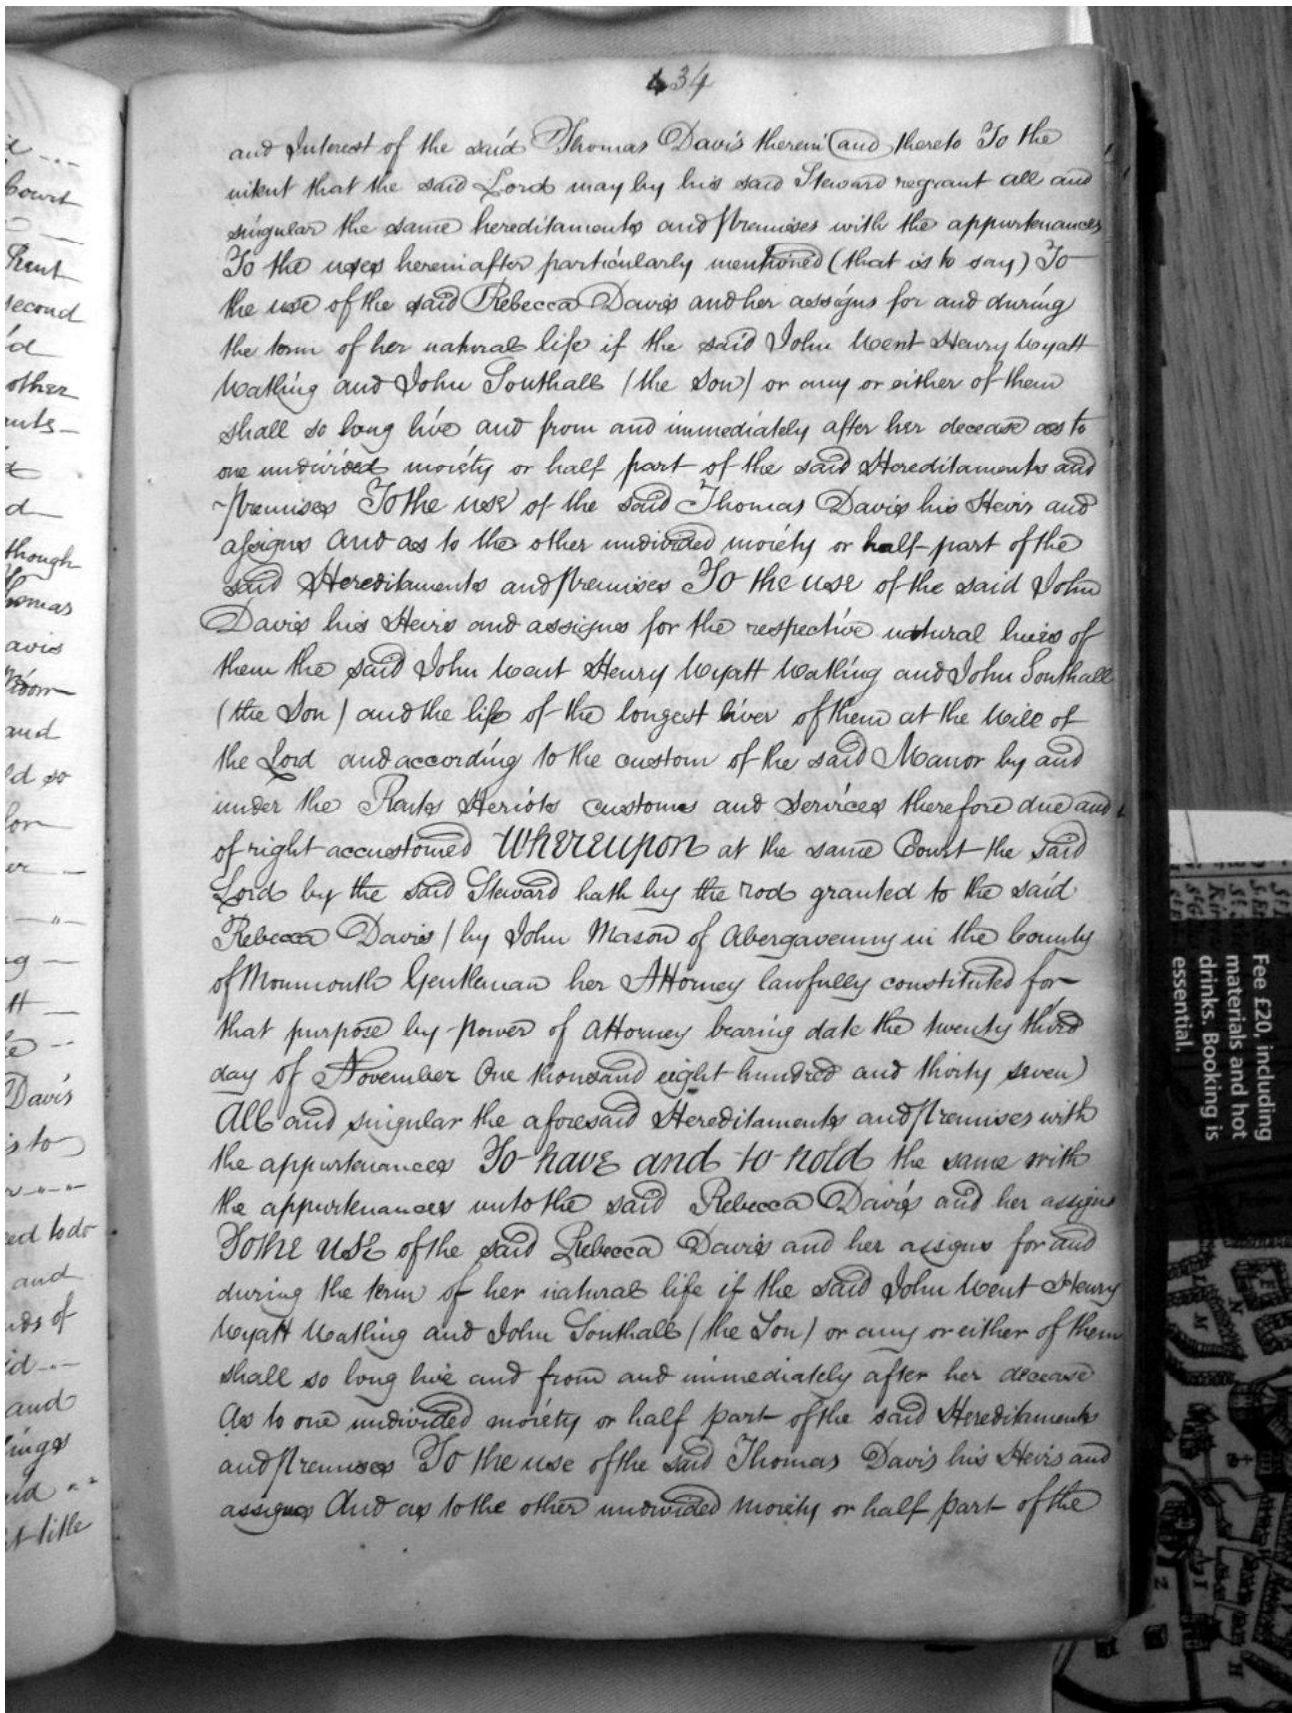 434
and Interest of the said Thomas Davis therein and thereto To the
intent that the said Lord may by his said Steward regrant all and
singular the same hereditaments and premises with the appurtenances
To the uses hereinafter particularly mentioned (that is to say) To
the use of the said Rebecca Davis and her assigns for and during
the term of her natural life if the said John Went Henry Wyatt
Watling and John Southall (the Son) or any or either of them
shall so long live and from and immediately after her decease as to
one undivided moiety or half part of the said Hereditaments and
premises To the use of the said Thomas Davis his Heirs and
assigns And as to the other undivided moiety or half part of the
said Hereditaments and premises To the use of the said John
Davis his Heirs and assigns for the respective natural lives of
them the said John Went Henry Wyatt Watling and John Southall
(the Son) and the life of the longest liver of them at the Will of
the Lord and according to the custom of the said Manor by and
under the Rents Heriots customs and services therefore due and
of right accustomed Whereupon at the same Court the said
Lord by the said Steward hath by the rod granted to the said
Rebecca Davis (by John Mason of Abergavenny in the County
of Monmouth Gentleman her Attorney lawfully constituted for
that purpose by power of Attorney bearing date the twenty third
day of November One thousand eight hundred and thirty seven)
All and singular the aforesaid Hereditaments and premises with
the appurtenances To have and to hold the same with
the appurtenances unto the said Rebecca Davis and her assigns
To the use of the said Rebecca Davis and her assigns for and
during the term of her natural life if the said John Went Henry
Wyatt Watling and John Southall (the Son) or any or either of them
shall so long live and from and immediately after her decease
As to one undivided moiety or half part of the said Hereditaments
and premises To the use of the said Thomas Davis his Heirs and
assigns And as to the other undivided moiety or half part of the
Court
Rent
second
other
though
Davis
is to
and
title
Fee £20, including
materials and hot
drinks. Booking is
essential.